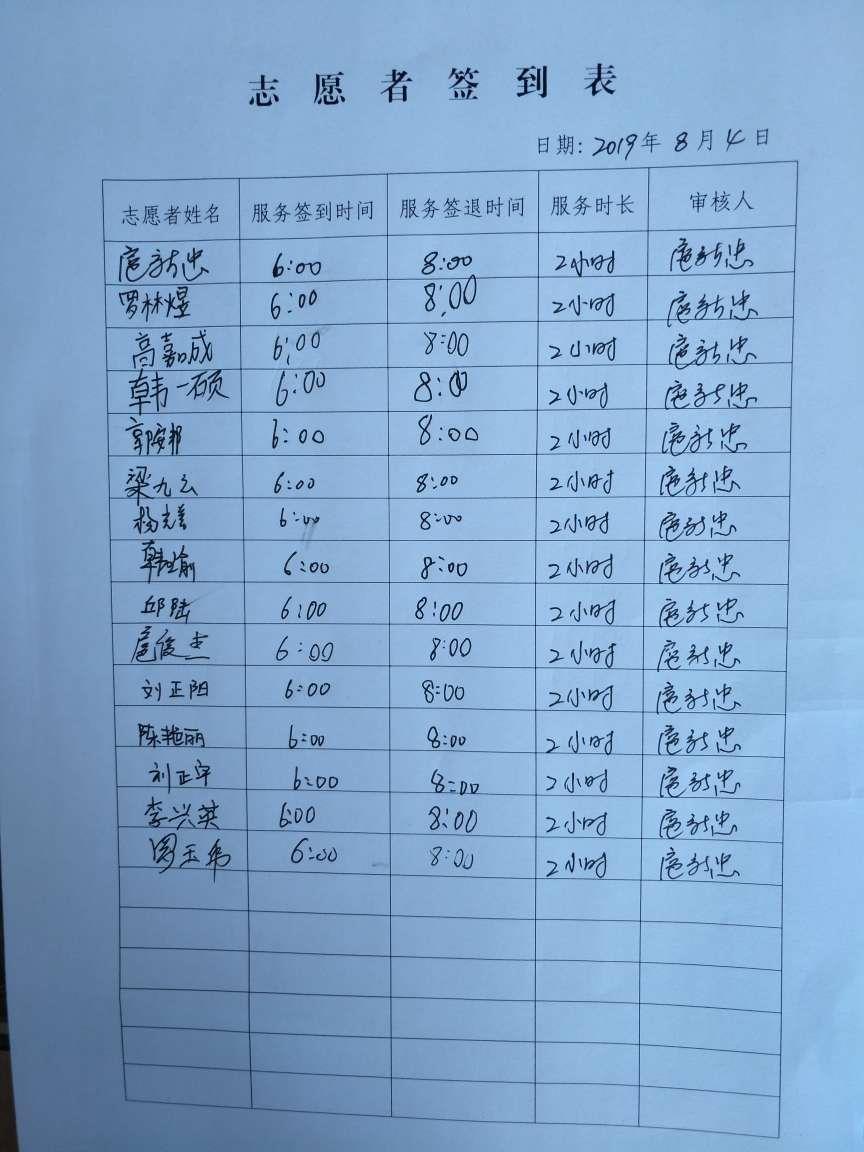 志愿者签到表
日期: 2019年 8月 4日
志愿者姓名 服务签到时间 服务签退时间 服务时长 审核人
扈新忠 6:00 8:00 2小时 扈新忠
罗林煜 6:00 8:00 2小时 扈新忠
高嘉成 6:00 8:00 2小时 扈新忠
韩一硕 6:00 8:00 2小时 扈新忠
郭安邦 6:00 8:00 2小时 扈新忠
梁九云 6:00 8:00 2小时 扈新忠
6:00 8:00 2小时 扈新忠
6:00 8:00 2小时 扈新忠
邱陆 6:00 8:00 2小时 扈新忠
扈俊杰 6:00 8:00 2小时 扈新忠
刘正阳 6:00 8:00 2小时 扈新忠
陈艳丽 6:00 8:00 2小时 扈新忠
刘正宇 6:00 8:00 2小时 扈新忠
李兴英 6:00 8:00 2小时 扈新忠
6:00 8:00 2小时 扈新忠